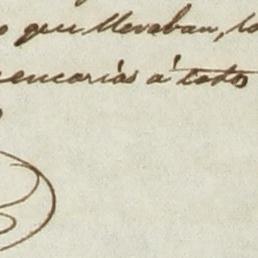 que llevaban, lo
encarias á todos